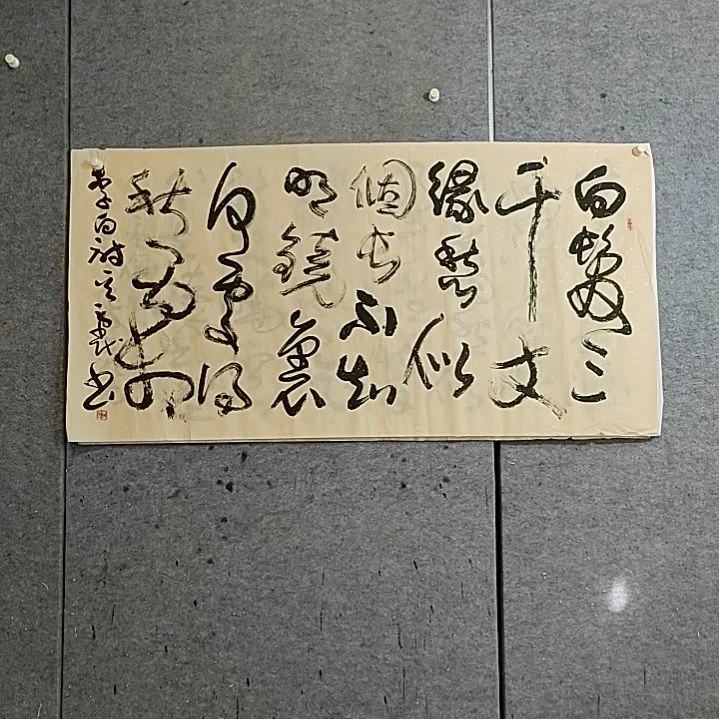 白髮三
千丈
緣愁似
個長不知
明鏡裏
何處得
秋霜
李白詩 書